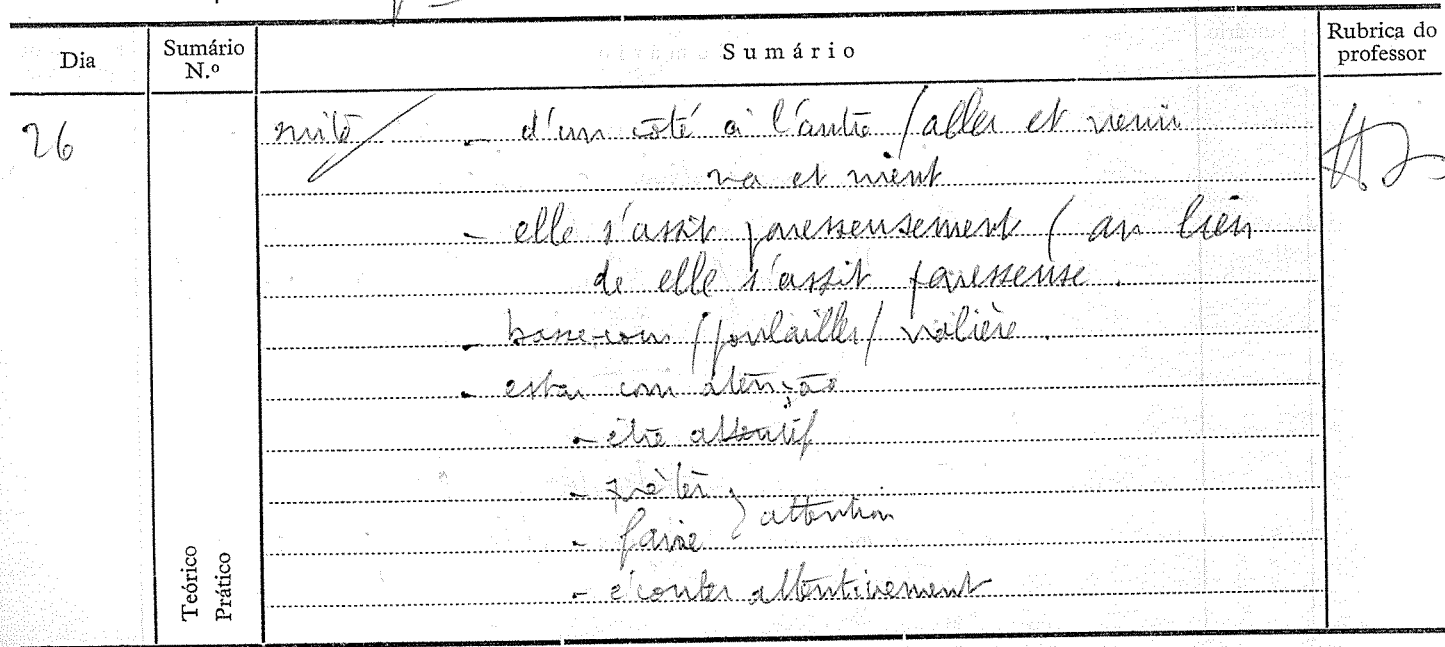 Dia
Sumário N.º
Sumário
Rubrica do professor
26
suite - d'un coté à l'autre / aller et venir
va et vient
- elle s'assit paresseusement ( au lieu
de elle s'assit paresseuse.
- basse-cour / poulailler / volière.
- estar com atenção
- être attentif
- prêter } attention
- faire
- écouter attentivement
Teórico
Prático